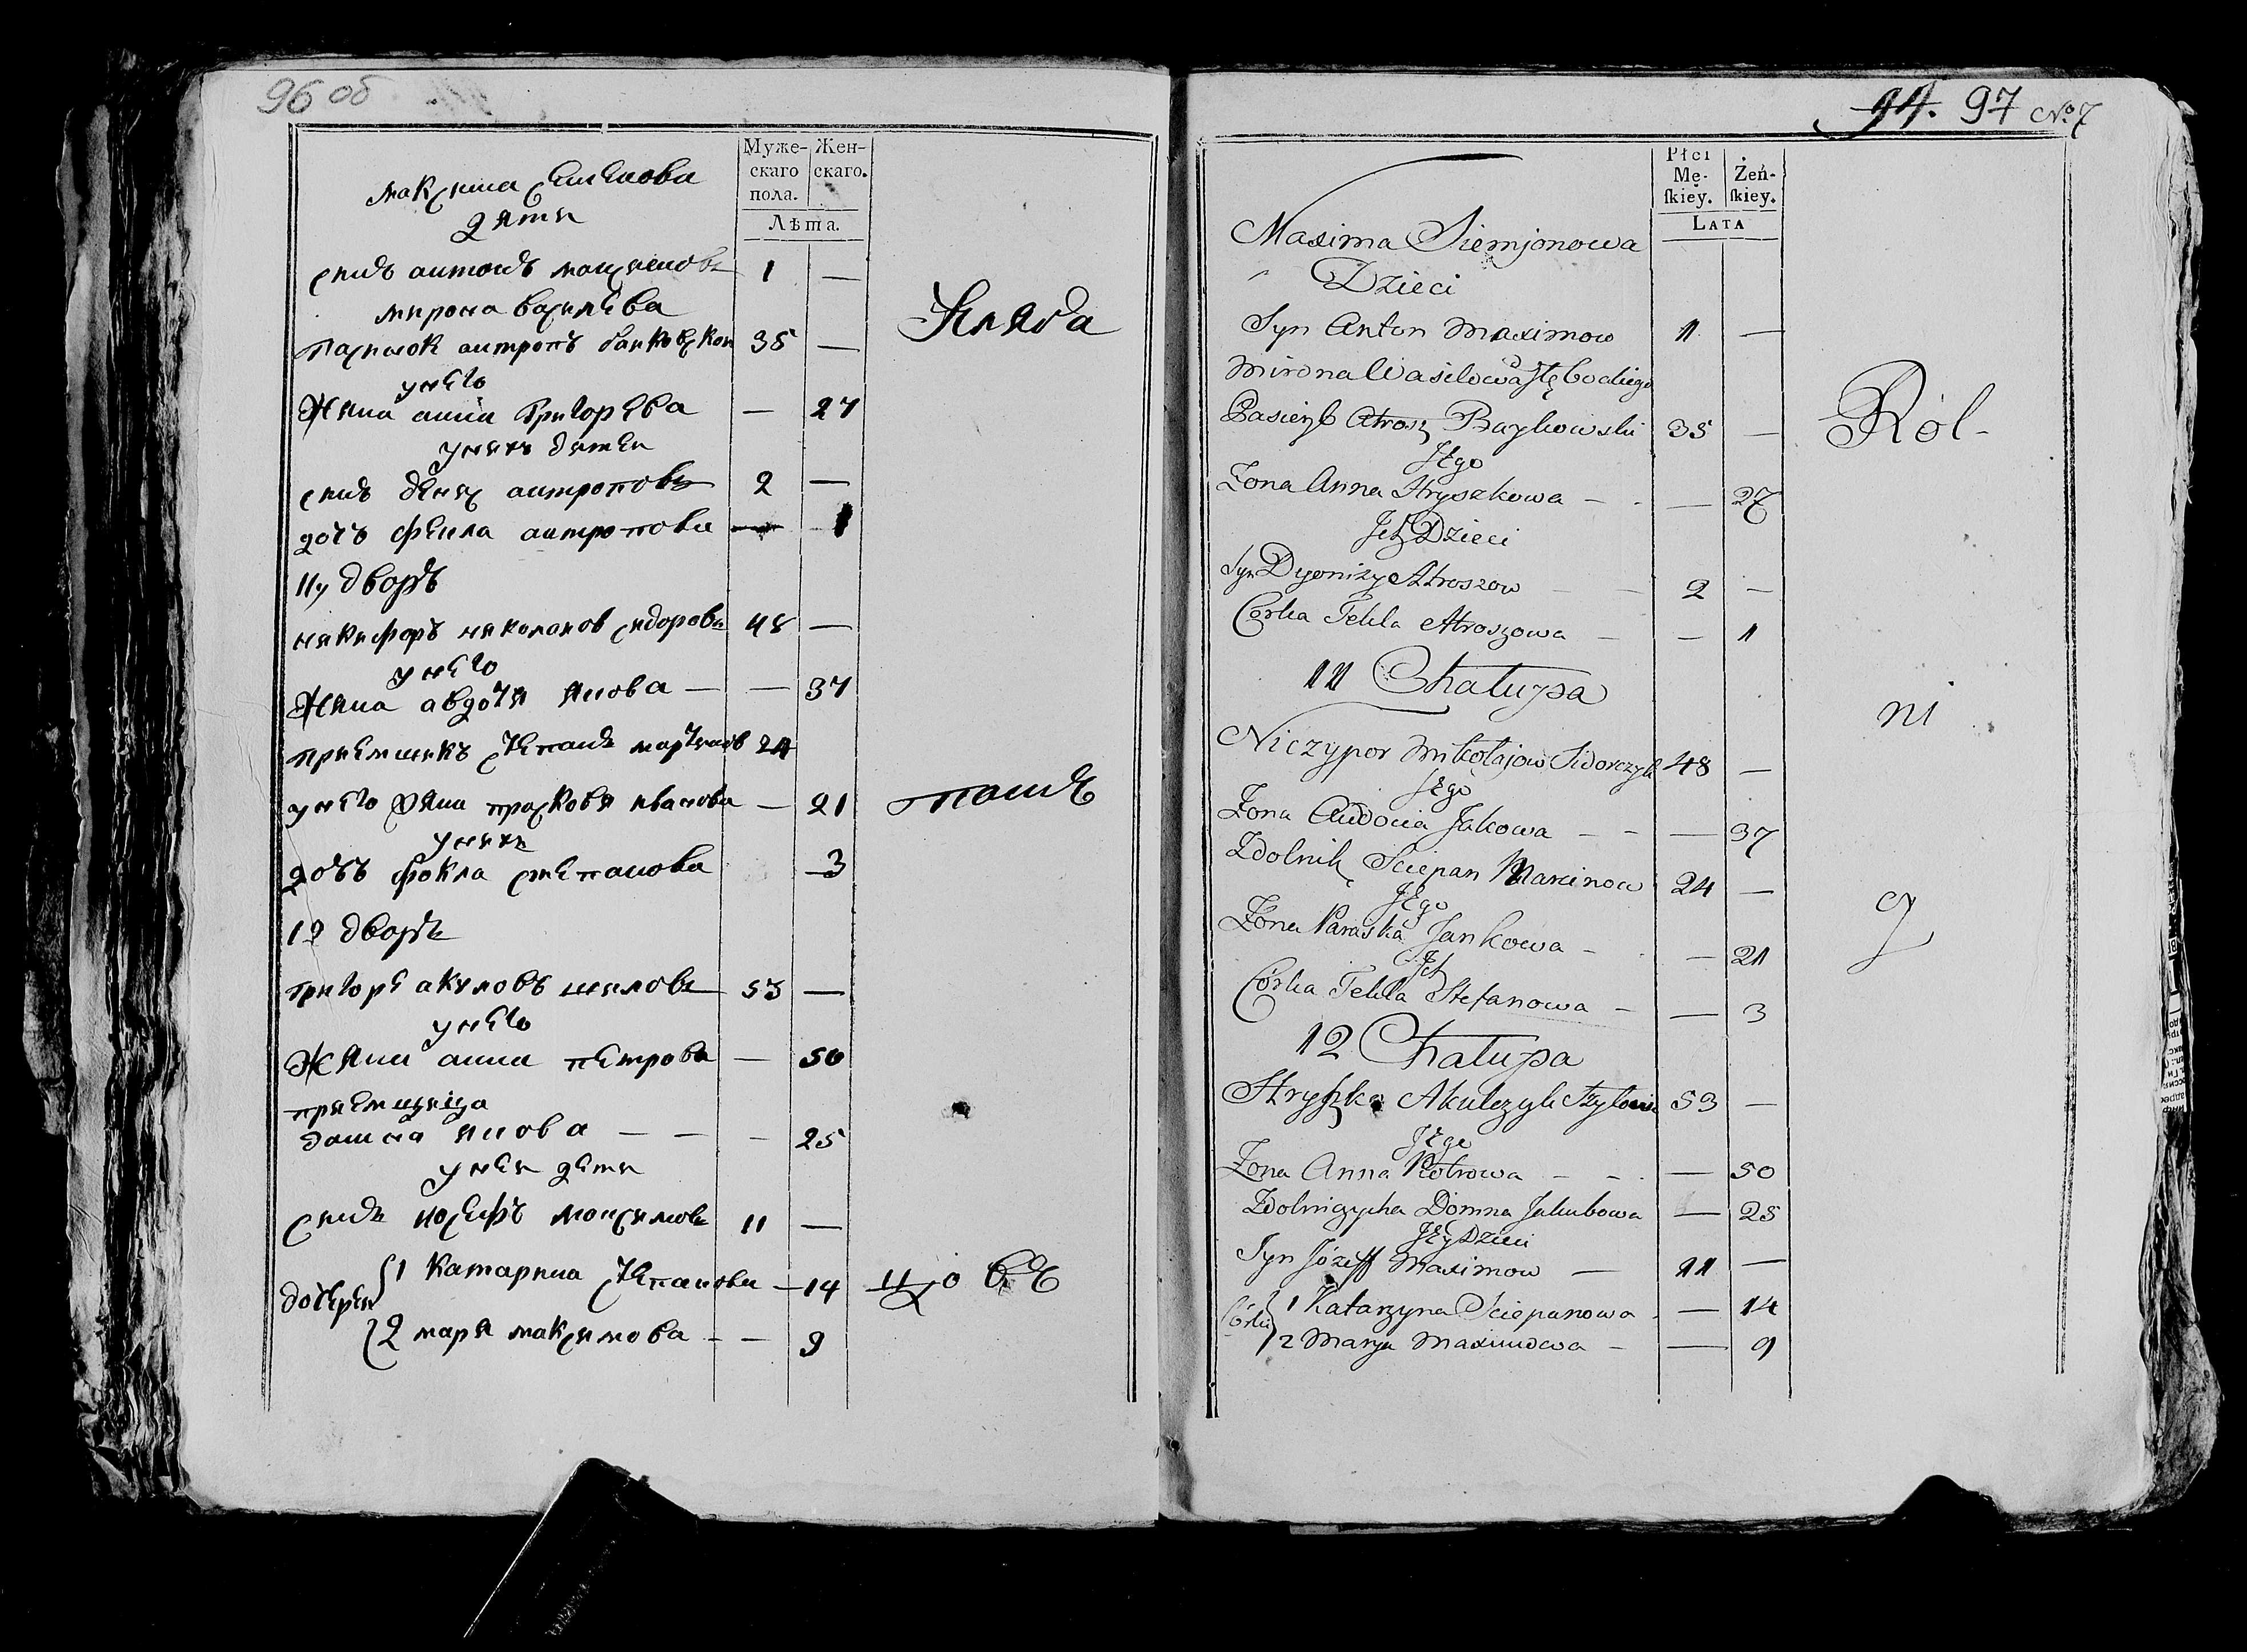 96 об
Муже-
скаго
пола.
Жен-
скаго.
Лѣта.
максима
дяти
сынъ антонъ 1 —
мирона василева
пасынок антропъ 35 —
унего
жена анна григорева — 27
унихъ дятеи
сынъ денис антроповъ 2 —
доч антропова — 1
11, дворъ
никифоръ николаиов сидоровъ 48 —
унего
жена авдотя янова — — 37
приемникъ степанъ 24
унего жена прасковя иванова — 21
унихъ
доч фокла степанова 3
12 дворъ
григоре акуловъ шиловъ 53 —
унего
жена анна петрова — 50
приемщица
янова — — — 25
унеи дети
сынъ иосифъ максимовъ 11 —
дочереи
1 катарина степанова — 14
2 маря максимова — — 9
94. 97 No. 7
Płci
Mę-
ſkiey.
Żeń-
ſkiey.
LATA
Maxima Siemjonowa
Dzieci
Syn Anton Maximow 1 —
Mirona Wasilowa
Pasierzb Atrosz Baykowski 35 —
Jego
Żona Anna Hryszkowa — — 27
Jch Dzieci
Syn Dyonizy Atroszow — — 2 —
Corka Tekla Atroszowa — — 1
11 Chatupa
Niczypor Mikołajow Sidorczyk 48 —
Jego
Zona Audocia Jakowa — — — 37
Zdolnik Sciepan Marcinow 24 —
Jego
Żona Paraska Jankowa — — 21
Jch
Córka Tekla Stefanowa — — 3
12 Chatupa
Hryszka Akulczyk 53 —
Jego
Zona Anna Piotrowa — — — 50
Zdolniczycha Domna Jakubowa — 25
Jey Dzieci
Syn Józeff Maximow — 11 —
Córki
1 Katarzyna Sciepanowa — 14
2 Marya Maximowa — — 9
Ról-
ni